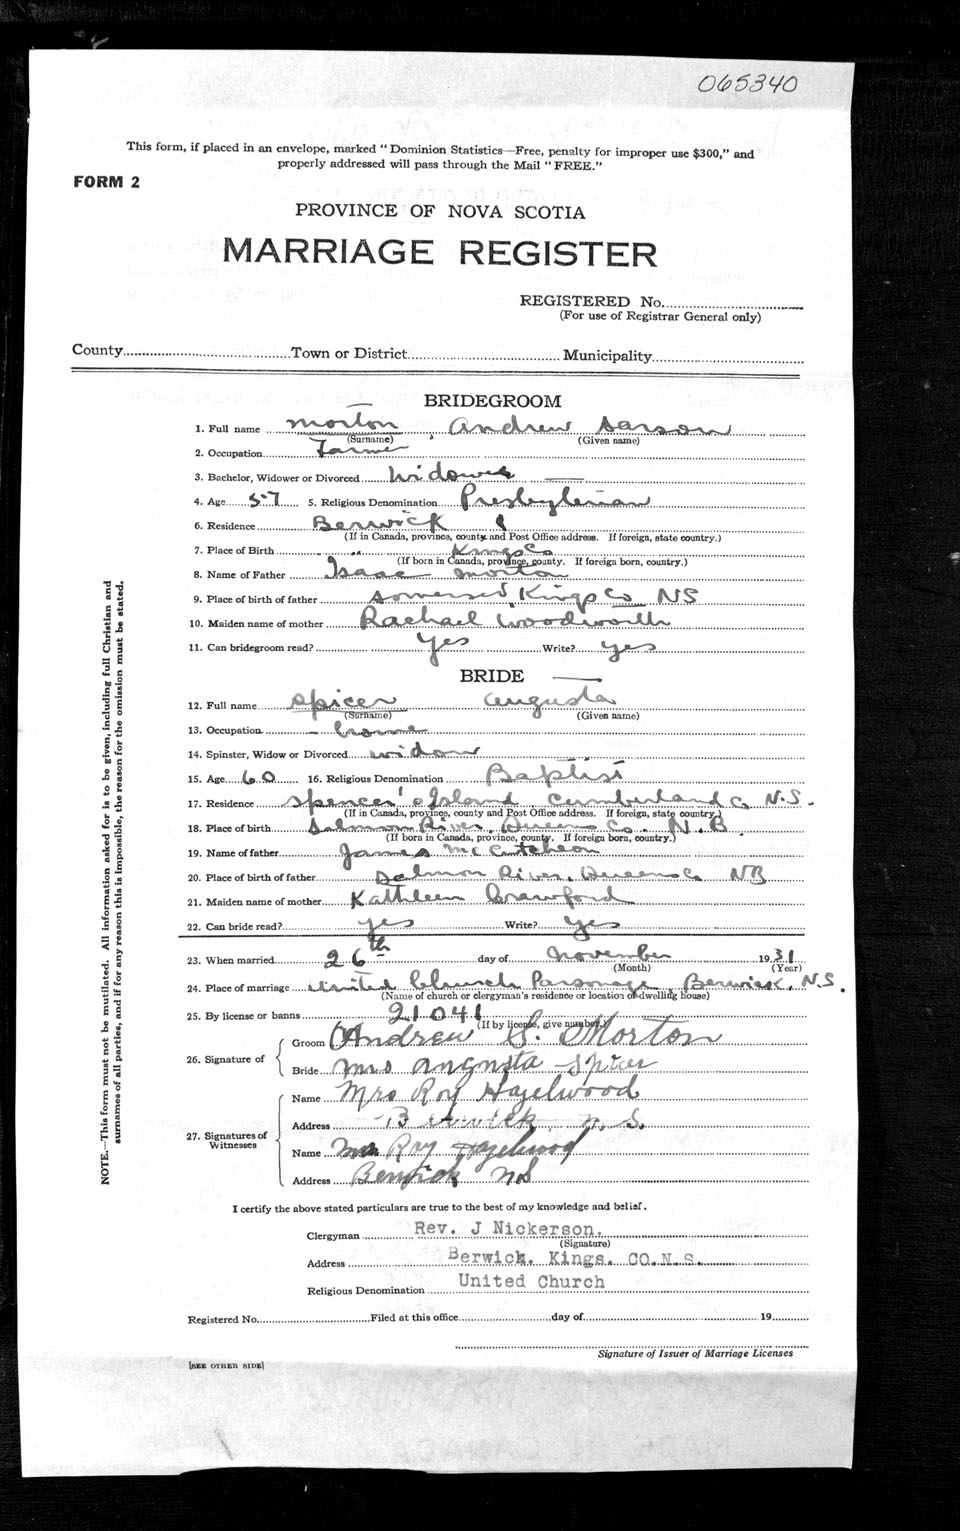 065340
This form, if placed in an envelope, marked "Dominion Statistics—Free, penalty for improper use $300," and
properly addressed will pass through the Mail "FREE."
FORM 2
PROVINCE OF NOVA SCOTIA
MARRIAGE REGISTER
REGISTERED No.
(For use of Registrar General only)
County Town or District Municipality
BRIDEGROOM
1. Full name Morton Andrew Sarson
(Surname) (Given name)
2. Occupation Farmer
3. Bachelor, Widower or Divorced Widower
4. Age 57 5. Religious Denomination Presbyterian
6. Residence Berwick
(If in Canada, province, county and Post Office address. If foreign, state country.)
7. Place of Birth " Kings Co
(If born in Canada, province, county. If foreign born, country.)
8. Name of Father Isaac Morton
9. Place of birth of father Somerset Kings Co NS
10. Maiden name of mother Rachael Woodworth
11. Can bridegroom read? Yes Write? Yes
BRIDE
12. Full name Spicer Augusta
(Surname) (Given name)
13. Occupation home
14. Spinster, Widow or Divorced widow
15. Age 60 16. Religious Denomination Baptist
17. Residence Spencer's Island Cumberland Co N.S.
(If in Canada, province, county and Post Office address. If foreign, state country.)
18. Place of birth Salmon River, Queens Co. N.B
(If born in Canada, province, county. If foreign born, country.)
19. Name of father James McCutcheon
20. Place of birth of father Salmon River, Queens Co NB
21. Maiden name of mother Kathleen Crawford
22. Can bride read? Yes Write? Yes
23. When married 26th day of November 1931
(Month) (Year)
24. Place of marriage United Church Parsonage, Berwick, N.S.
(Name of church or clergyman's residence or location of dwelling house)
25. By license or banns 21041
(If by license, give number)
26. Signature of
Groom Andrew S. Morton
Bride Mrs Augusta Spicer
27. Signatures of Witnesses
Name Mrs Roy Hazelwood
Address Berwick, N.S.
Name Roy Hazelwood
Address Berwick NS
I certify the above stated particulars are true to the best of my knowledge and belief.
Clergyman Rev. J Nickerson.
(Signature)
Address Berwick, Kings. CO.N.S.
Religious Denomination United Church
Registered No. Filed at this office day of 19
Signature of Issuer of Marriage Licenses
[SEE OTHER SIDE]
NOTE.—This form must not be mutilated. All information asked for is to be given, including full Christian and
surnames of all parties, and if for any reason this is impossible, the reason for the omission must be stated.